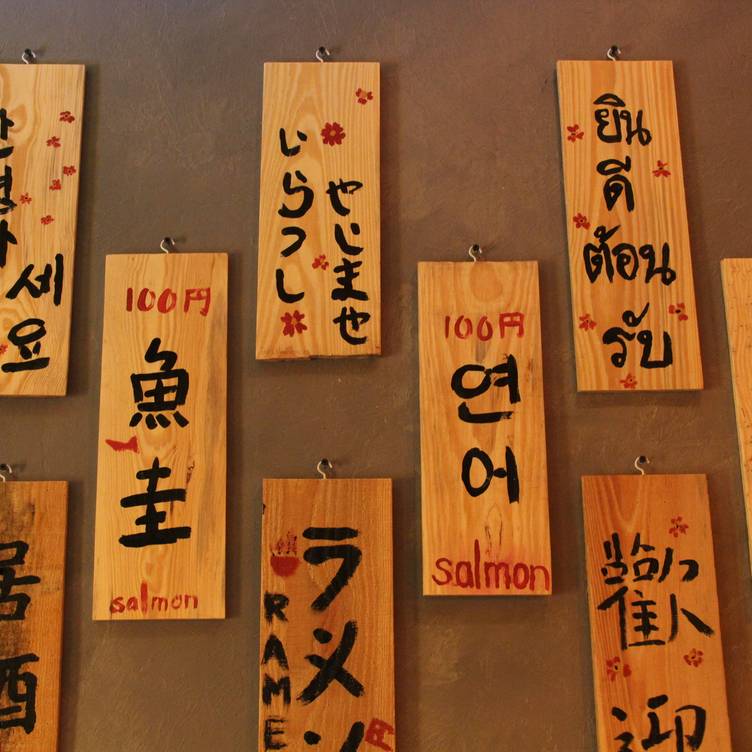 안녕하
세요
いらつし
やじませ
ยิน
ดี
ต้อน
รับ
100円
魚
圭
salmon
100円
연
어
salmon
居
酒
ラメン
RAME
円
歡
迎